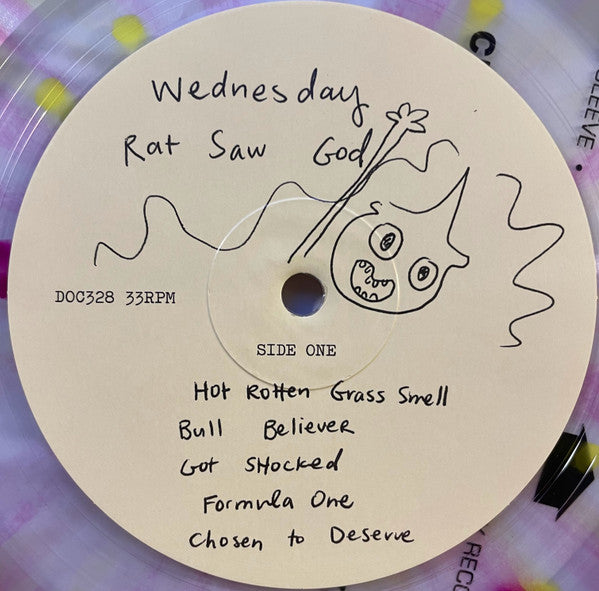 Wednesday
Rat Saw God
DOC328 33RPM
SIDE ONE
Hot Rotten Grass Smell
Bull Believer
Got SHocked
Formula One
Chosen to Deserve
SLEEVE.
RECO